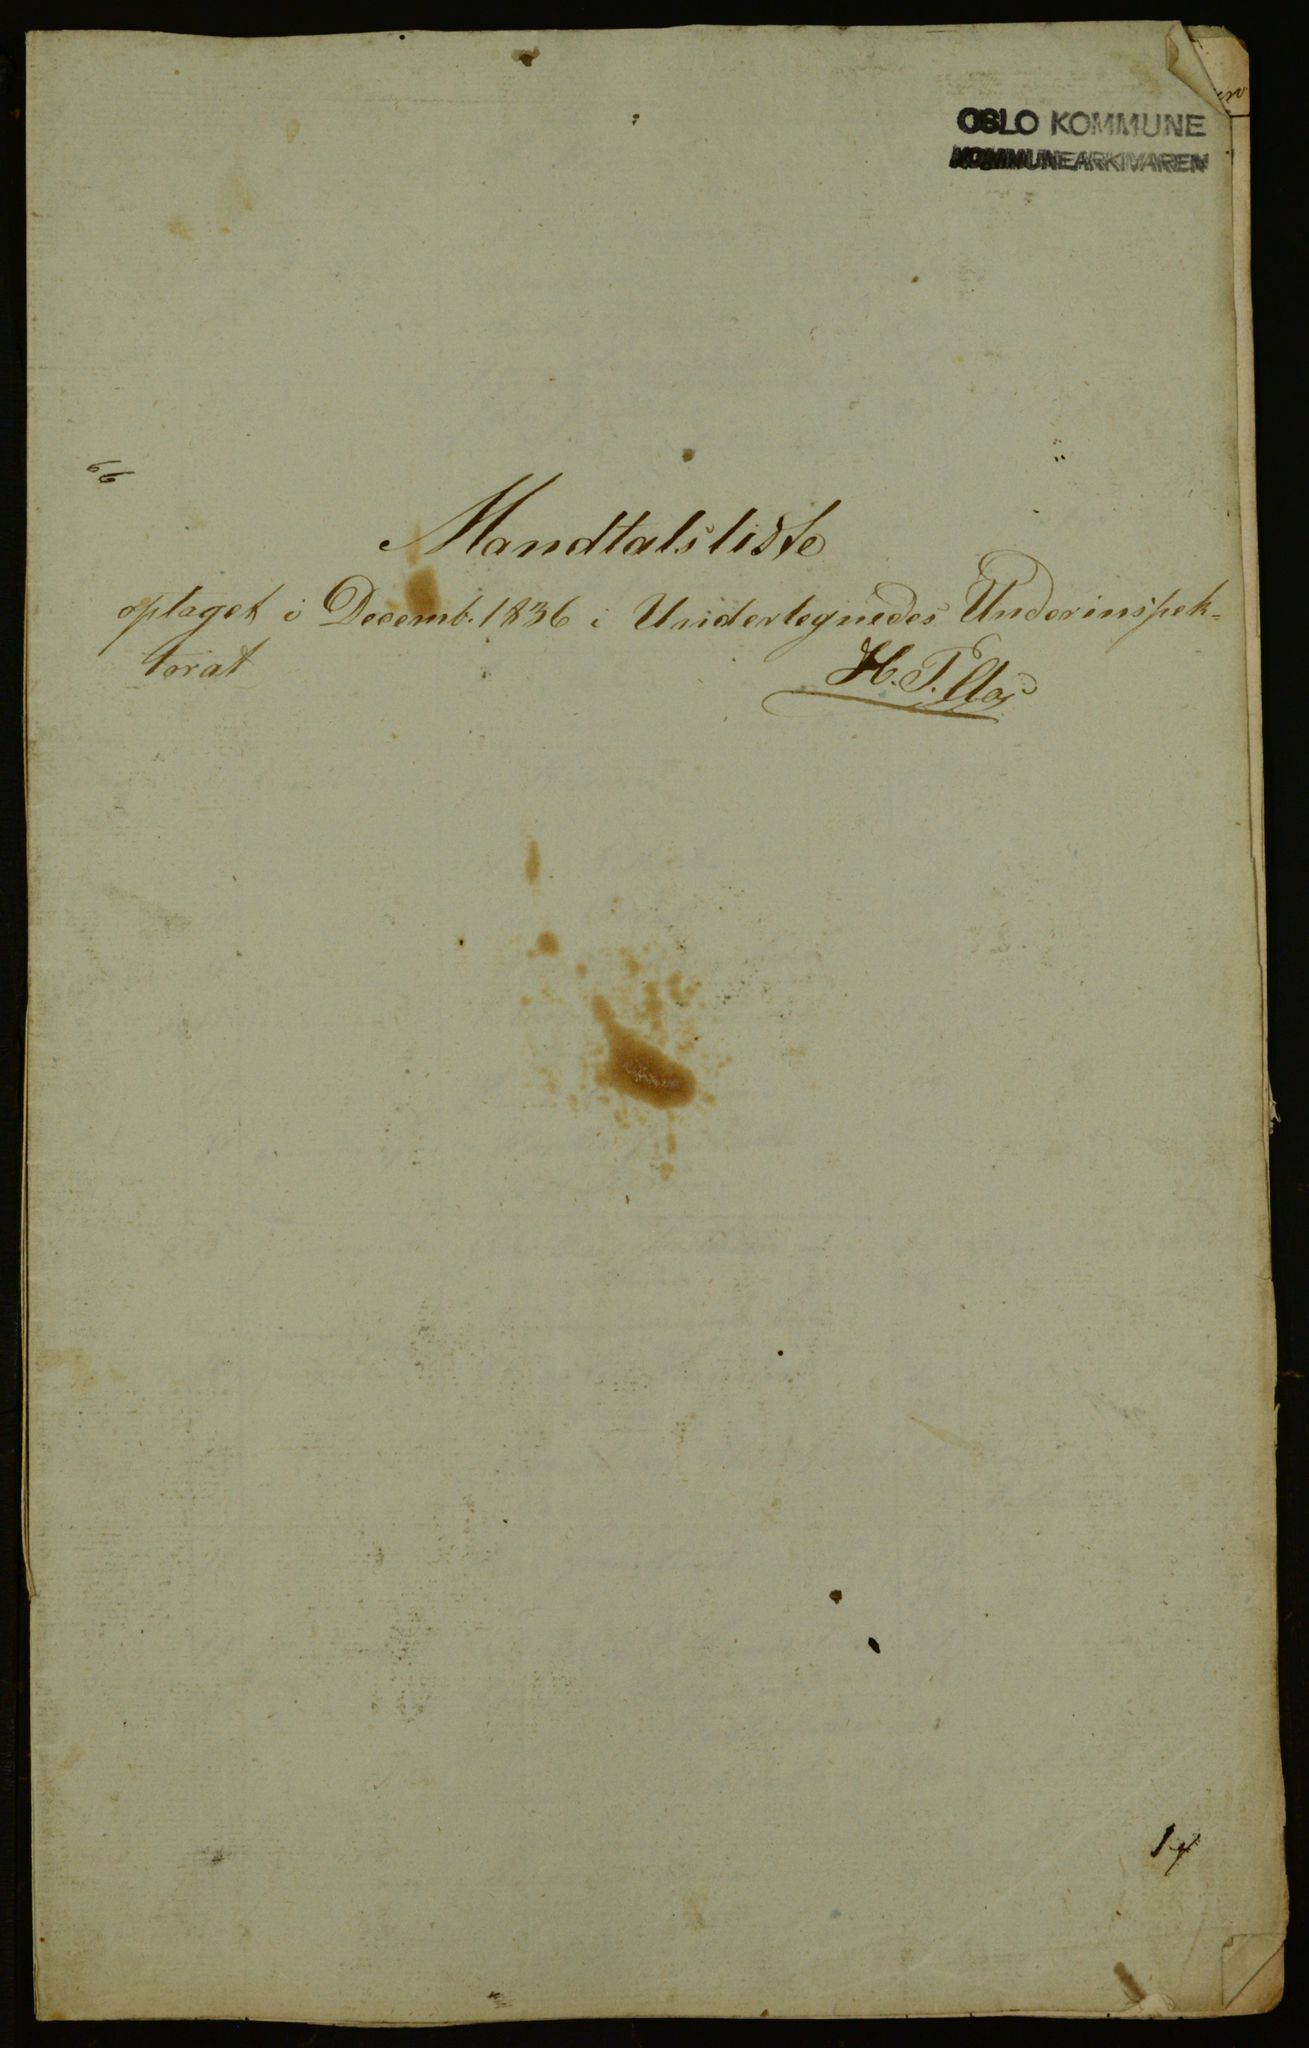 OSLO KOMMUNE
KOMMUNEARKIVAREN
Mandtalsliste
optaget i Decemb. 1836 i Undertegnedes Underinspek-
torat
H. T.